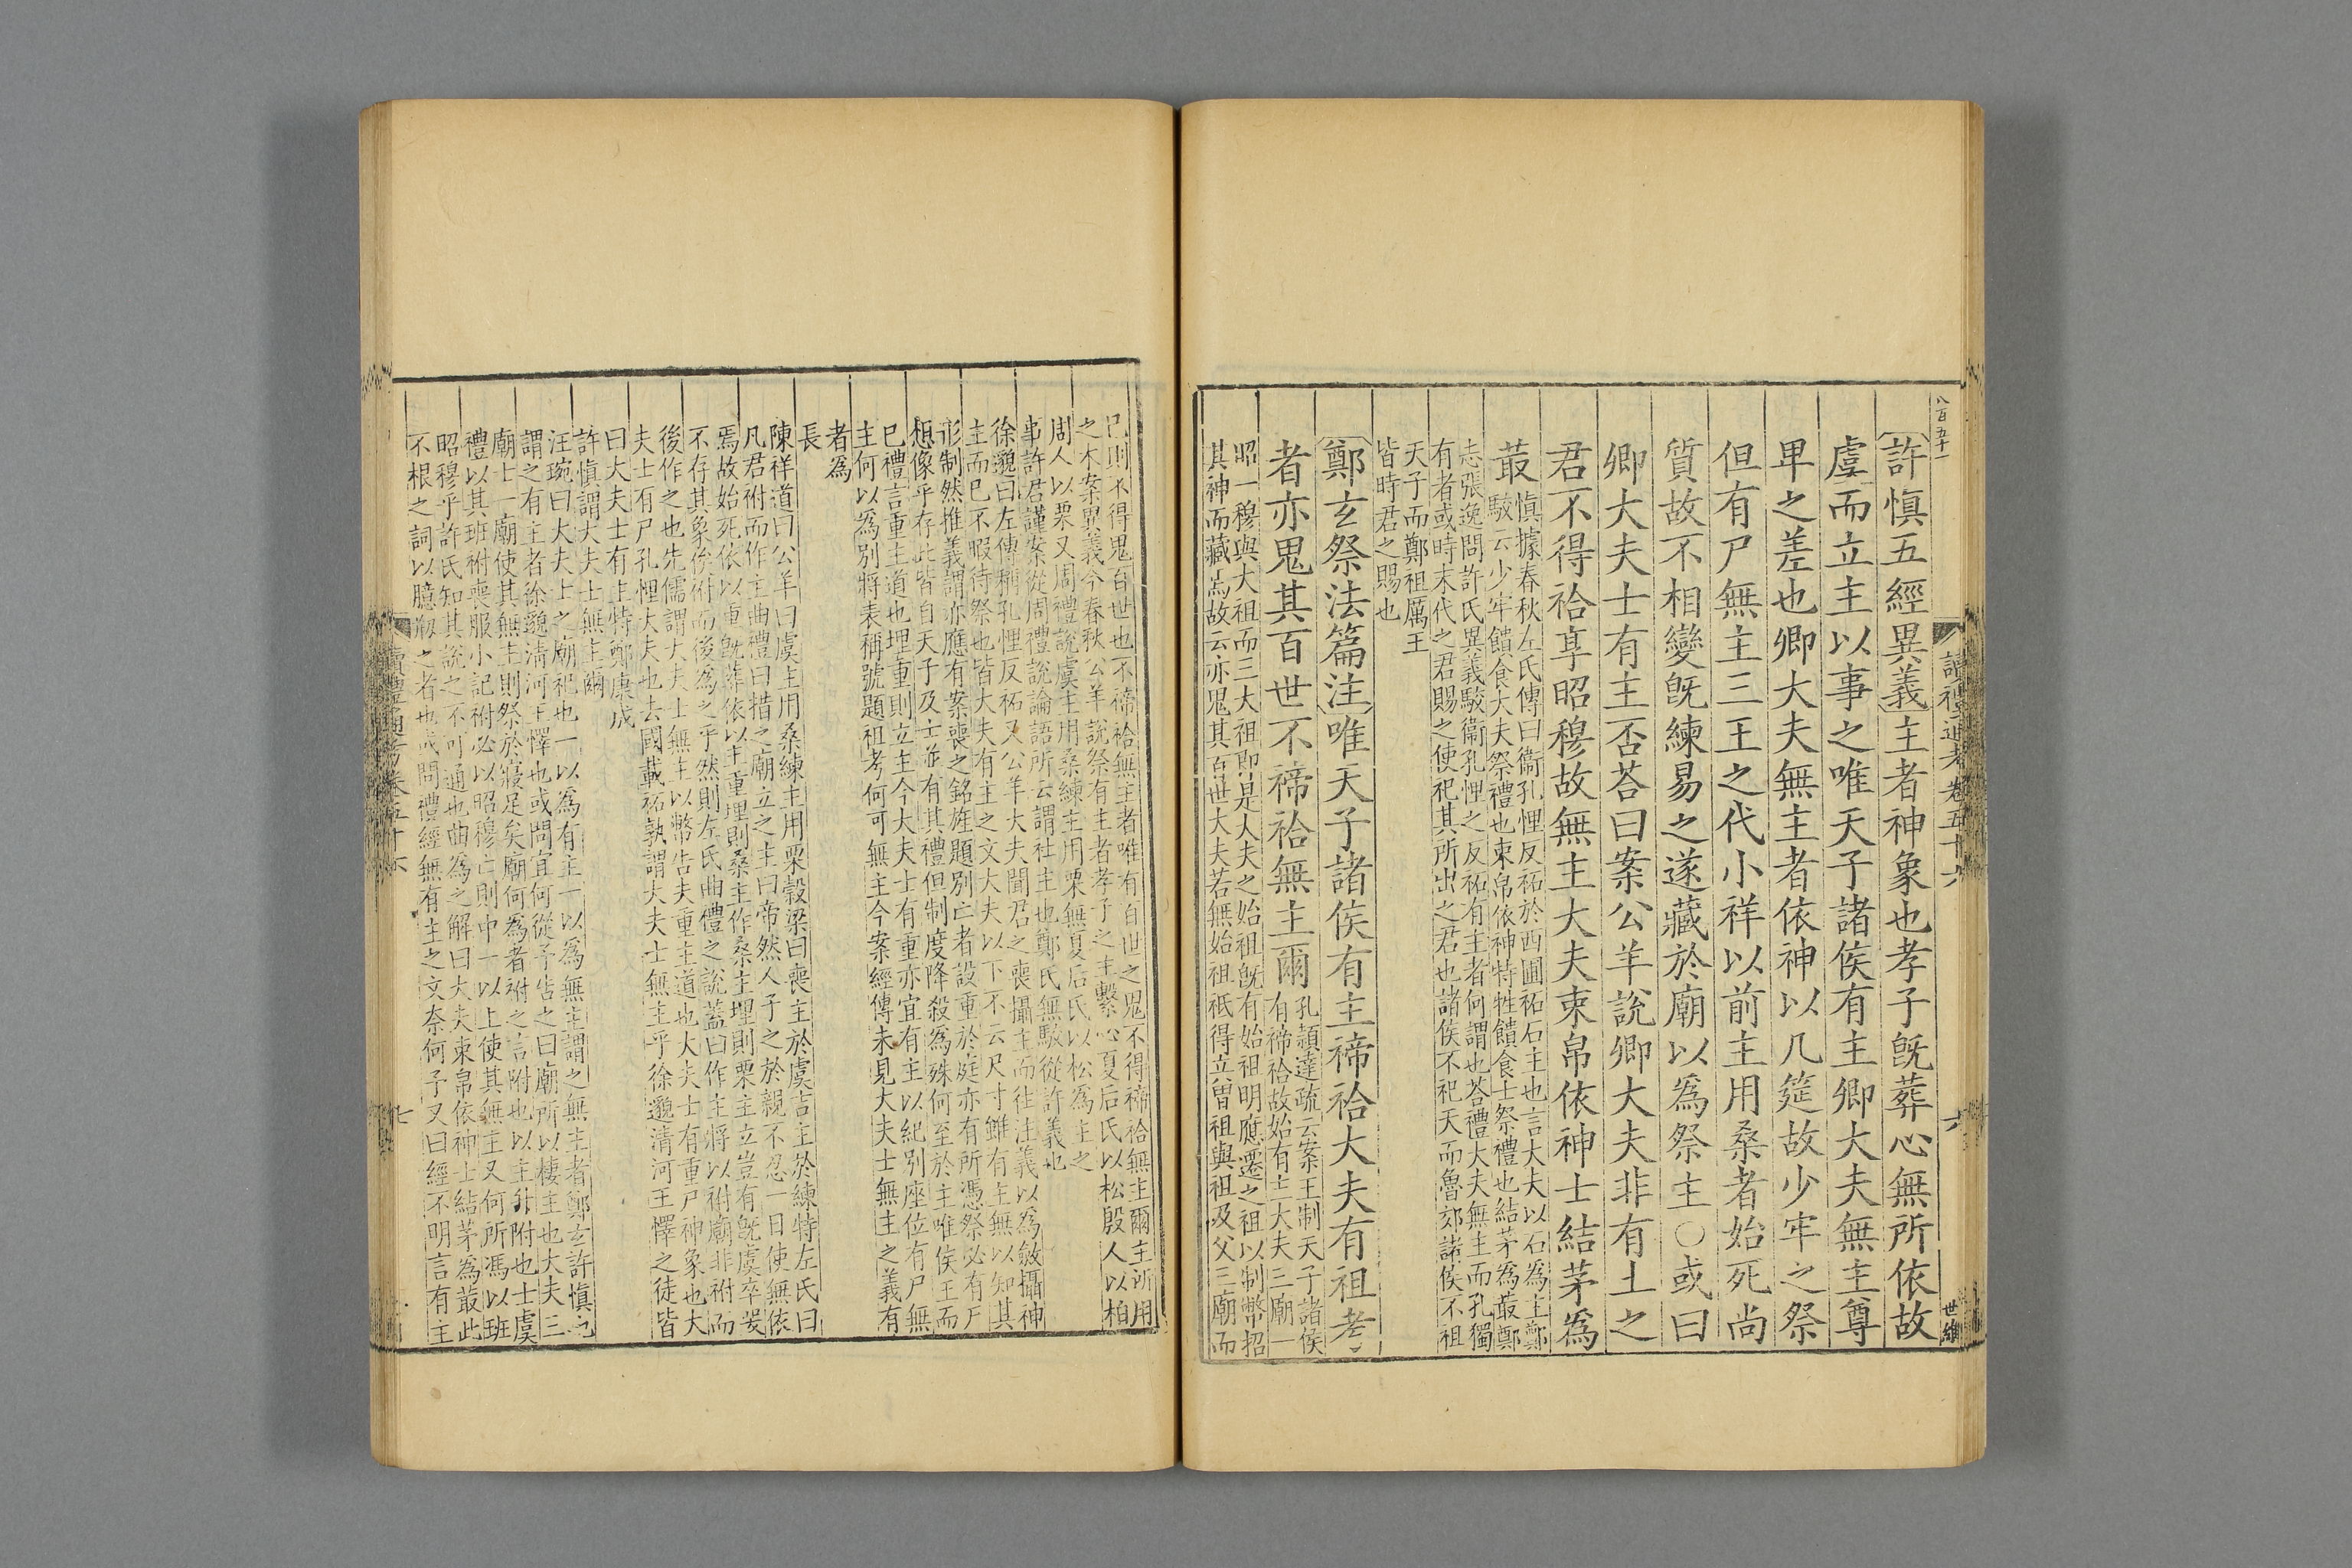 八百五十一
讀禮通考卷五十六
六
世繩
許慎五經異義主者神象也孝子旣葬心無所依故
虞而立主以事之唯天子諸侯有主卿大夫無主尊
卑之差也卿大夫無主者依神以几筵故少牢之祭
但有尸無主三王之代小祥以前主用桑者始死尚
質故不相變旣練易之遂藏於廟以爲祭主○或曰
卿大夫士有主否荅曰案公羊說卿大夫非有土之
君不得祫享昭穆故無主大夫束帛依神士結茅爲
菆
慎據春秋左氏傳曰衞孔悝反祏於西圃祏石主也言大夫以石爲主鄭
駮云少牢饋食大夫祭禮也束帛依神特牲饋食士祭禮也結茅爲菆鄭
志張逸問許氏異義駮衞孔悝之反祏有主者何謂也荅禮大夫無主而孔獨
有者或時末代之君賜之使祀其所出之君也諸侯不祀天而魯郊諸侯不祖
天子而鄭祖厲王
皆時君之賜也
鄭玄祭法篇注唯天子諸侯有主禘祫大夫有祖考
者亦鬼其百世不禘祫無主爾
孔頴達疏云案王制天子諸侯
有禘祫故始有主大夫三廟一
昭一穆與大祖而三大祖即是大夫之始祖旣有始祖明應遷之祖以制幣招
其神而藏焉故云亦鬼其百世大夫若無始祖祗得立曽祖與祖及父三廟而
已則不得鬼百世也不禘祫無主者唯有百世之鬼不得禘祫無主爾主所用
之木案異義今春秋公羊說祭有主者孝子之主繫心夏后氏以松殷人以柏
周人以栗又周禮說虞主用桑練主用栗無夏后氏以松爲主之
事許君謹案從周禮說論語所云謂社主也鄭氏無駮從許義也
徐邈曰左傳稱孔悝反祏又公羊大夫聞君之喪攝主而往注義以爲斂攝神
主而已不暇待祭也皆大夫有主之文大夫以下不云尺寸雖有主無以知其
形制然推義謂亦應有案喪之銘旌題別亡者設重於庭亦有所憑祭必有尸
想像乎存此皆自天子及士並有其禮但制度降殺爲殊何至於主唯侯王而
已禮言重主道也埋重則立主今大夫士有重亦宜有主以紀別座位有尸無
主何以爲別將表稱號題祖考何可無主今案經傳未見大夫士無主之義有
者爲
長
陳祥道曰公羊曰虞主用桑練主用栗穀梁曰喪主於虞吉主於練特左氏曰
凡君祔而作主曲禮曰措之廟立之主曰帝然人子之於親不忍一日使無依
焉故始死依以重旣葬依以主重埋則桑主作桑主埋則栗主立豈有旣虞卒哭
不存其象俟祔而後爲之乎然則左氏曲禮之說蓋曰作主將以祔廟非祔而
後作之也先儒謂大夫士無主以幣告夫重主道也大夫士有重尸神象也大
夫士有尸孔悝大夫也去國載祏孰謂大夫士無主乎徐邈淸河王懌之徒皆
曰大夫士有主特鄭康成
許慎謂大夫士無主爾
汪琬曰大夫士之廟祀也一以爲有主一以爲無主謂之無主者鄭玄許慎也
謂之有主者徐邈淸河王懌也或問宜何從予告之曰廟所以棲主也大夫三
廟士一廟使其無主則祭於寢足矣廟何爲者祔之言附也以主升附也士虞
禮以其班祔喪服小記祔必以昭穆亡則中一以上使其無主又何所馮以班
昭穆乎許氏知其說之不可通也曲爲之解曰大夫束帛依神士結茅爲菆此
不根之詞以臆刱之者也或問禮經無有主之文奈何予又曰經不明言有主
讀禮通考卷五十六
七